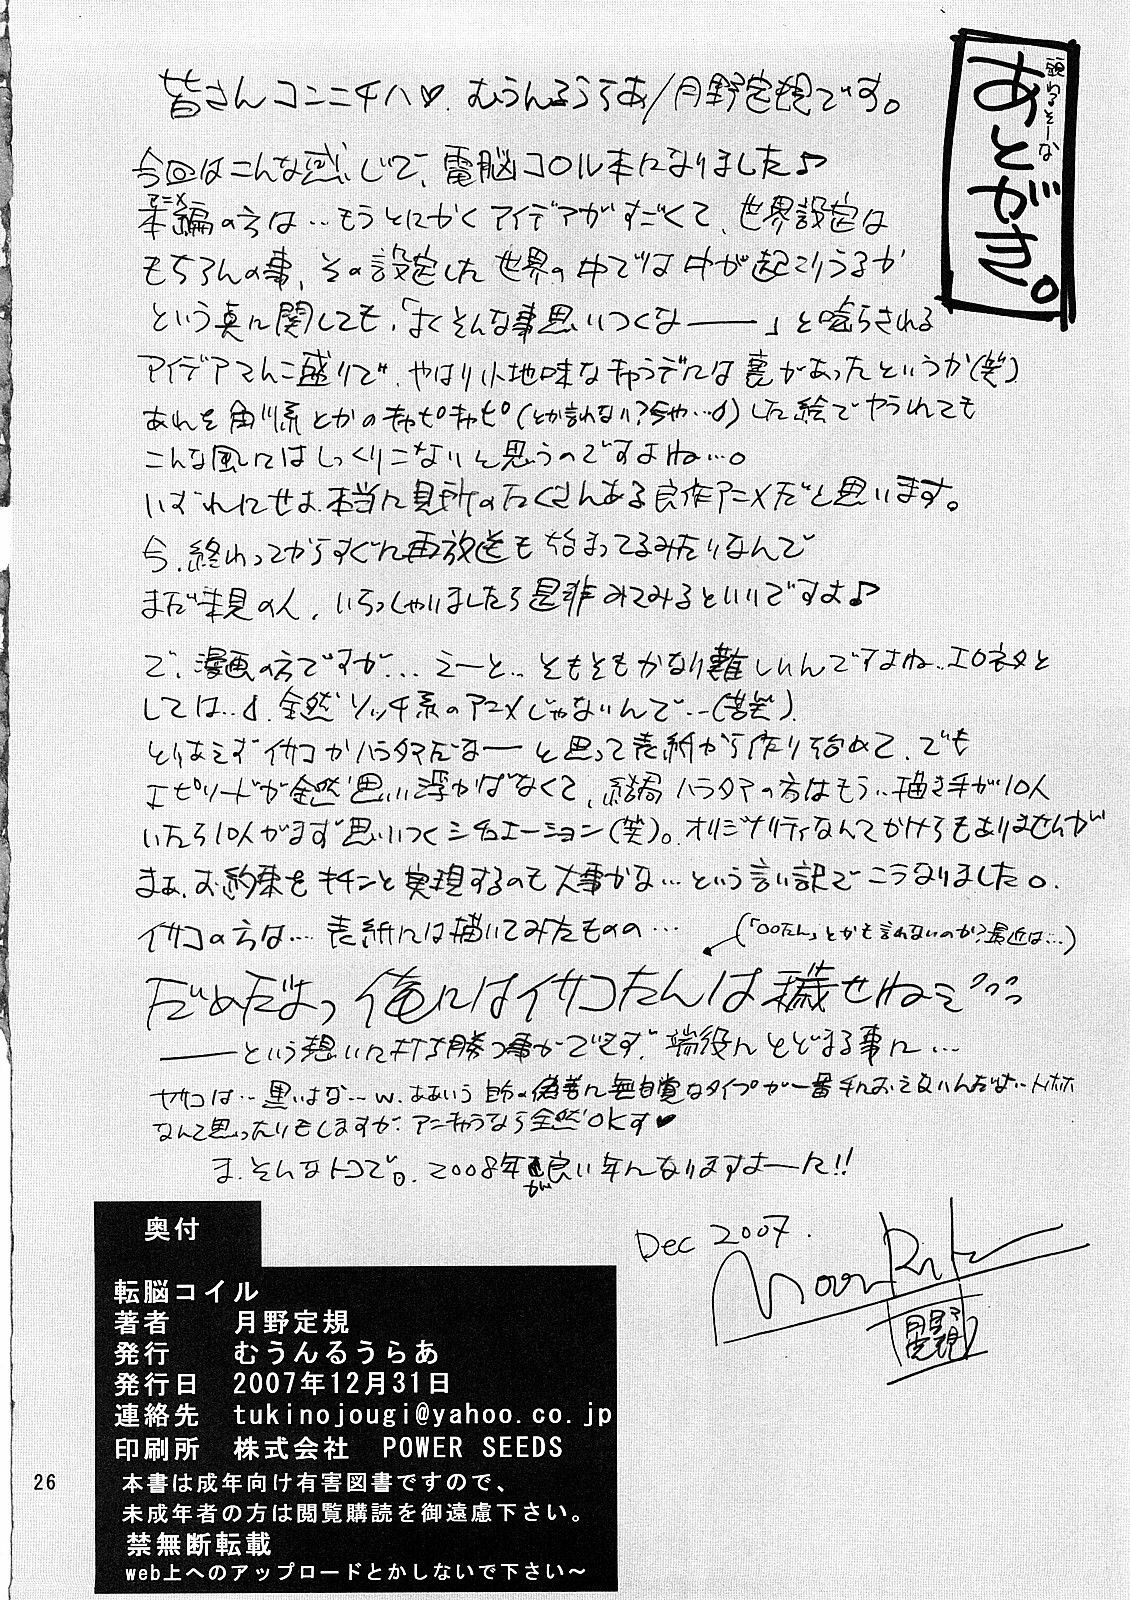 頭わるそーな
あとがき。
皆さんコンニチハ♡. むうんるうらあ/月野定規です。
今回はこんな感じで、電脳コイル本になりました♪
アニメ
本編の方は…もうとにかくアイデアがすごくて、世界設定は
もちろんの事、その設定した世界の中では何が起こりうるか
という点に関しても、「よくそんな事思いつくなーー」と唸らされる
アイデアてんこ盛りで、やはり小地味なキャラデには裏があったというか(笑)
あれを角川系とかのキャピキャピ(とか言わない?ちゃ…♪)した絵でやられても
こんな風にはしっくりこないと思うのですよね…。
いずれにせよ、本当に見所のたくさんある良作アニメだと思います。
今、終わってからすぐに再放送も始まってるみたいなんで
まだ未見の人、いらっしゃいましたら是非みてみるといいですよ♪
で、漫画の方ですが…えーと…そもそもかなり難しいんですよね…エロネタと
しては…♪. 全然ソッチ系のアニメじゃないんで…(苦笑).
とりあえずイサコかハラタマだなーーと思って表紙から作り始めて、でも
エピソードが全然思い浮かばなくて、結局ハラタマの方はもう…描き手が10人
いたら10人がまず思いつくシチュエーション(笑)。オリジナリティなんてかけらもありませんが
まぁ、お約束をキチンと実現するのも大事かな…という言い訳でこうなりました。
イサコの方は… 表紙には描いてみたものの…
(「○○たん」とかも言わないのか?最近は…)
だめだよっ 俺にはイサコたんは穢せねぇ
ーーという想いに打ち勝つ事ができず、端役にとどまる事に…
ヤサコは…黒いよな…w. ああいう自分の偽善に無自覚なタイプが一番手におえないんだよ…トホホ
なんて思ったりもしますが、アニキャラなら全然OKす♥
ま、そんなトコで。2008年が良い年になりますよーに!!
Dec 2007.
月野定規
奥付
転脳コイル
著者 月野定規
発行 むうんるうらあ
発行日 2007年12月31日
連絡先 tukinojougi@yahoo.co.jp
印刷所 株式会社 POWER SEEDS
本書は成年向け有害図書ですので、
未成年者の方は閲覧購読を御遠慮下さい。
禁無断転載
web上へのアップロードとかしないで下さい〜
26